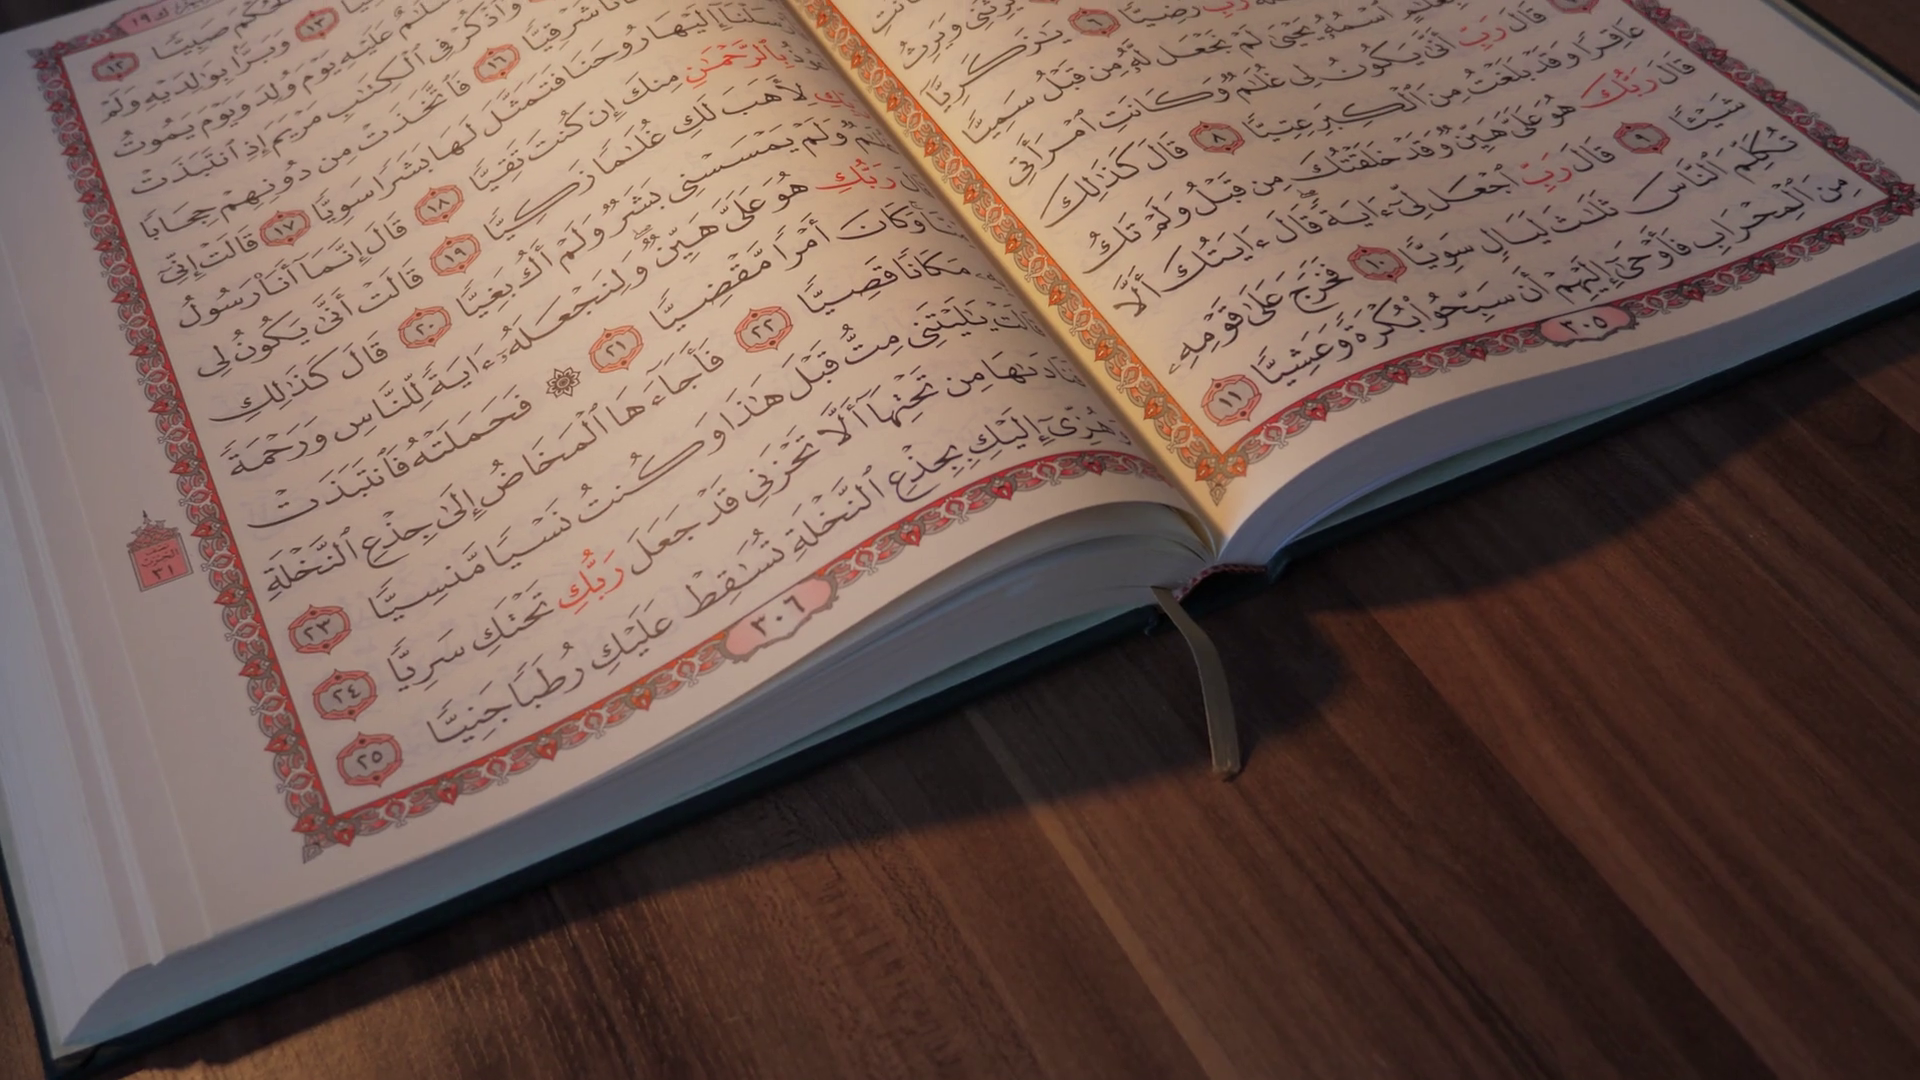 زَكَرِيَّا
يَٰزَكَرِيَّآ
رَضِيًّا ٦
ٱسْمُهُۥ يَحْيَىٰ لَمْ نَجْعَل لَّهُۥ مِن قَبْلُ سَمِيًّا
قَالَ رَبِّ أَنَّىٰ يَكُونُ لِى غُلَٰمٌ وَكَانَتِ ٱمْرَأَتِى
عَاقِرًا وَقَدْ بَلَغْتُ مِنَ ٱلْكِبَرِ عِتِيًّا ٨ قَالَ كَذَٰلِكَ
قَالَ رَبُّكَ هُوَ عَلَىَّ هَيِّنٌ وَقَدْ خَلَقْتُكَ مِن قَبْلُ وَلَمْ تَكُ
شَيْـًٔا ٩ قَالَ رَبِّ ٱجْعَل لِّىٓ ءَايَةً ۚ قَالَ ءَايَتُكَ أَلَّا
تُكَلِّمَ ٱلنَّاسَ ثَلَٰثَ لَيَالٍ سَوِيًّا ١٠ فَخَرَجَ عَلَىٰ قَوْمِهِۦ
مِنَ ٱلْمِحْرَابِ فَأَوْحَىٰٓ إِلَيْهِمْ أَن سَبِّحُوا۟ بُكْرَةً وَعَشِيًّا ١١
٣٠٥
صَبِيًّا ١٢
١٣ وَبَرًّۢا بِوَٰلِدَيْهِ وَلَمْ
عَلَيْهِ يَوْمَ وُلِدَ وَيَوْمَ يَمُوتُ
وَٱذْكُرْ فِى ٱلْكِتَٰبِ مَرْيَمَ إِذِ ٱنتَبَذَتْ
شَرْقِيًّا ١٦ فَٱتَّخَذَتْ مِن دُونِهِمْ حِجَابًا
إِلَيْهَا رُوحَنَا فَتَمَثَّلَ لَهَا بَشَرًا سَوِيًّا ١٧ قَالَتْ إِنِّىٓ
بِٱلرَّحْمَٰنِ مِنكَ إِن كُنتَ تَقِيًّا ١٨ قَالَ إِنَّمَآ أَنَا۠ رَسُولُ
لِأَهَبَ لَكِ غُلَٰمًا زَكِيًّا ١٩ قَالَتْ أَنَّىٰ يَكُونُ لِى
وَلَمْ يَمْسَسْنِى بَشَرٌ وَلَمْ أَكُ بَغِيًّا ٢٠ قَالَ كَذَٰلِكِ
رَبُّكِ هُوَ عَلَىَّ هَيِّنٌ ۖ وَلِنَجْعَلَهُۥٓ ءَايَةً لِّلنَّاسِ وَرَحْمَةً
وَكَانَ أَمْرًا مَّقْضِيًّا ٢١ ۞ فَحَمَلَتْهُ فَٱنتَبَذَتْ
مَكَانًا قَصِيًّا ٢٢ فَأَجَآءَهَا ٱلْمَخَاضُ إِلَىٰ جِذْعِ ٱلنَّخْلَةِ
قَالَتْ يَٰلَيْتَنِى مِتُّ قَبْلَ هَٰذَا وَكُنتُ نَسْيًا مَّنسِيًّا ٢٣
فَنَادَىٰهَا مِن تَحْتِهَآ أَلَّا تَحْزَنِى قَدْ جَعَلَ رَبُّكِ تَحْتَكِ سَرِيًّا ٢٤
وَهُزِّىٓ إِلَيْكِ بِجِذْعِ ٱلنَّخْلَةِ تُسَٰقِطْ عَلَيْكِ رُطَبًا جَنِيًّا ٢٥
٣٠٦
٣١